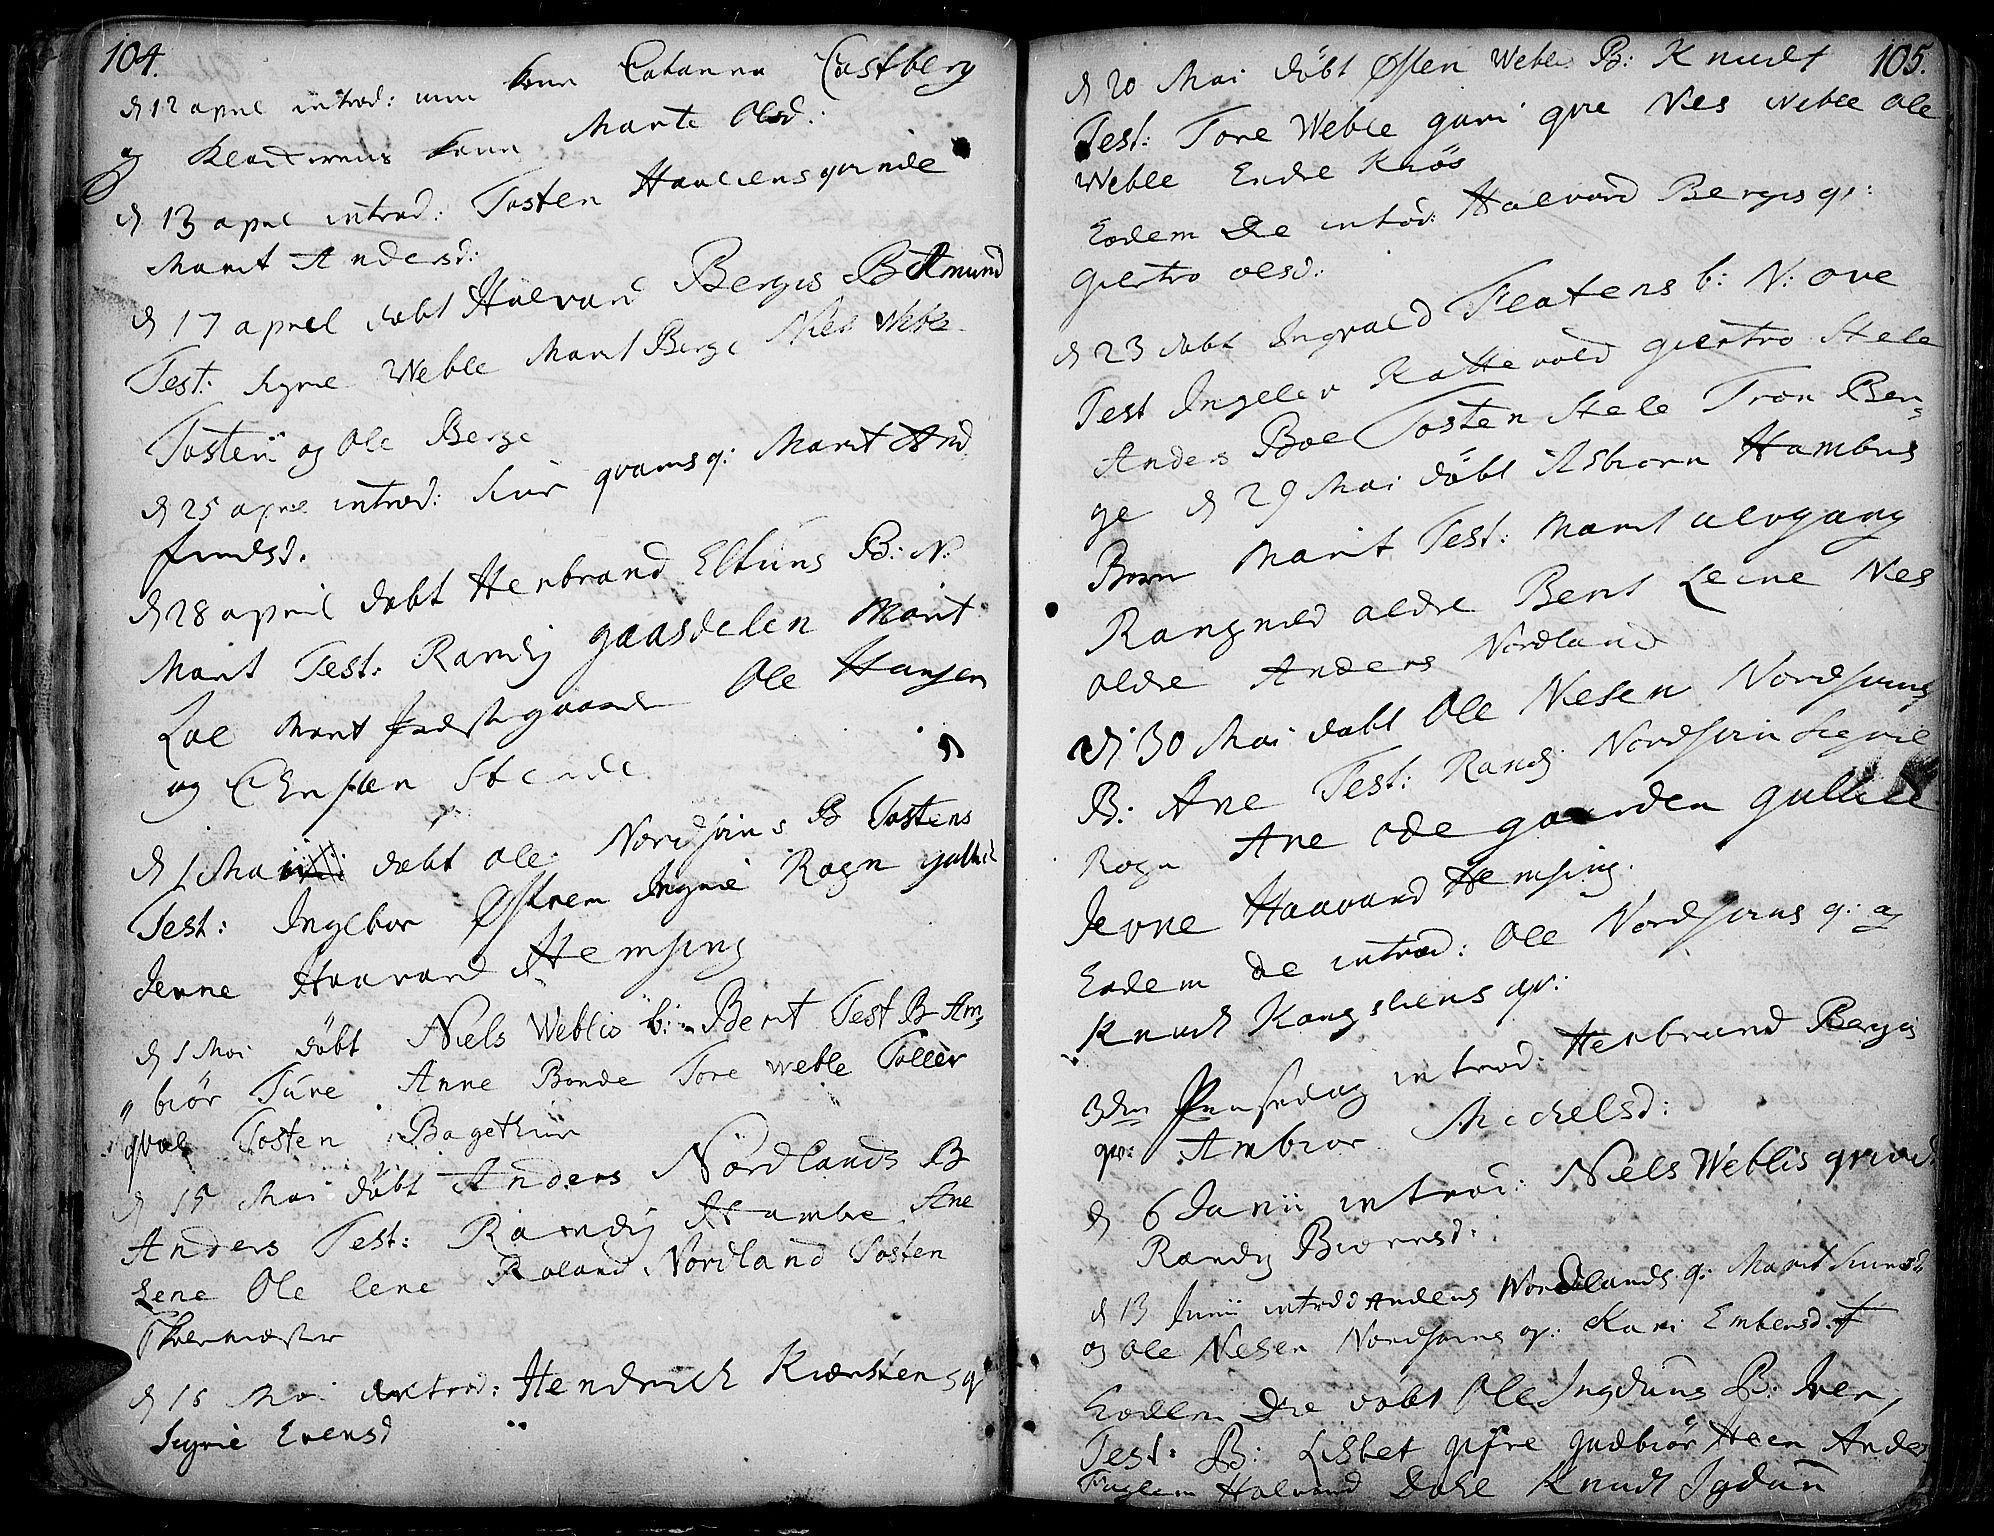 104.
d 12 april introd: min kone Catarina Castberg
og kona Marite Olsd:
d 13 april introd: Tosten Haaliens qvinde
Marit Andersd:
d 17 april døbt Halvard Bergis B Amund
Test: Sigrie Weble Marit Berge Niels Weble
Tosten og Ole Berge
d 25 april introd: qvams q: Marit And
d 28 april døbt Henbrand Eltuns B: N:
Marit Test: Randij gaasdelen Marit
Loe Marit Præstegaarden Ole Hansen
og
d 1 Maii døbt Ole Nordsvins B Tostens
Test: Ingebor Østrem Ingrie Rogn gullich
Jevne Haavard Hemsing
d 1 Mai døbt Niels Weblis b: Berit Test B Am
biør Ture Anne Bonde Tore Weble Toller
qvale Tosten Bagethun
d 15 Mai døbt Anders Nordlands B
Anders Test: Randij Hambre Ane
Lene Ole lene Roland Nordland Tosten
d 15 Mai introd: Hendrich Kierstens q
Sigrie Evensd
105.
d 20 Mai døbt Østen Weblis B: Knudt
Test: Tore Weble guri qve Nies Weble Ole
Weble Endre Kiøs
Eodem Die introd: Halvord Bergis q:
giertro olsd:
d 23 døbt Ingvald Flatens b: N: Ove
Test Ingelev Kattevold giertro Stele
Anders Boe Tosten Stele Tron Ber
ge d 29 Mai døbt Asbiørn Hambris
Barn Marit Test: Marit ulvgang
Rangnild oldre Bent Leine Nes
oldre Anders Nordland
d 30 Mai døbt Ole Nielsen Nordsvins
B: Ane Test: Randij Nordsvin Sigrie
Rogn Ane Ødegaarden gullich
Jevne Haavard Hemsing.
Eodem die introd: Ole Nordsvins q: og
Knudt Kongsliens qv:
3dm Pinsedag introd: Henbrand Bergis
qv: Ambiør Michelsd:
d 6 Junii introd: Niels Weblis qvind
Randij Biørnsd:
d 13 Junii introd Anders Nordlands q: Marit
og Ole Nielsen Nordsvins qv: Kari Embensd:
Eodem Die døbt Ole Ingduns B: Iver
Test: B: Lisbet gifre gudbiør Heen Anders
Fuglem Halvord Dahl Knudt Igdun